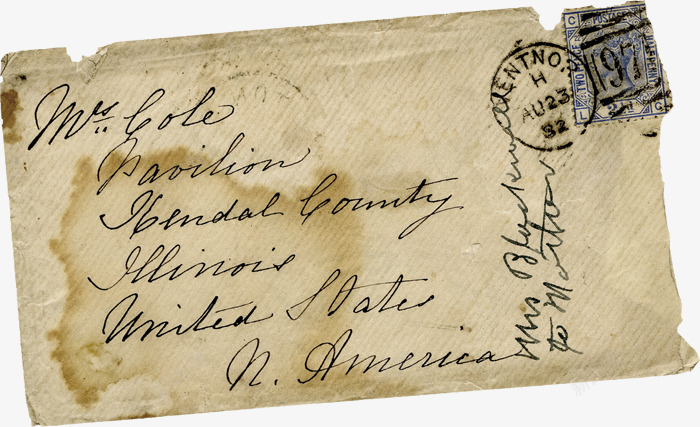 Mrs. Cole
Pavilion
Kendal County
Illinois
United States
N. America
Mrs Blackwell
to Mother
VENTNOR
H
AU 23
82
97
POSTAGE
TWO PENCE
HALFPENNY
2½
C
L
L
C